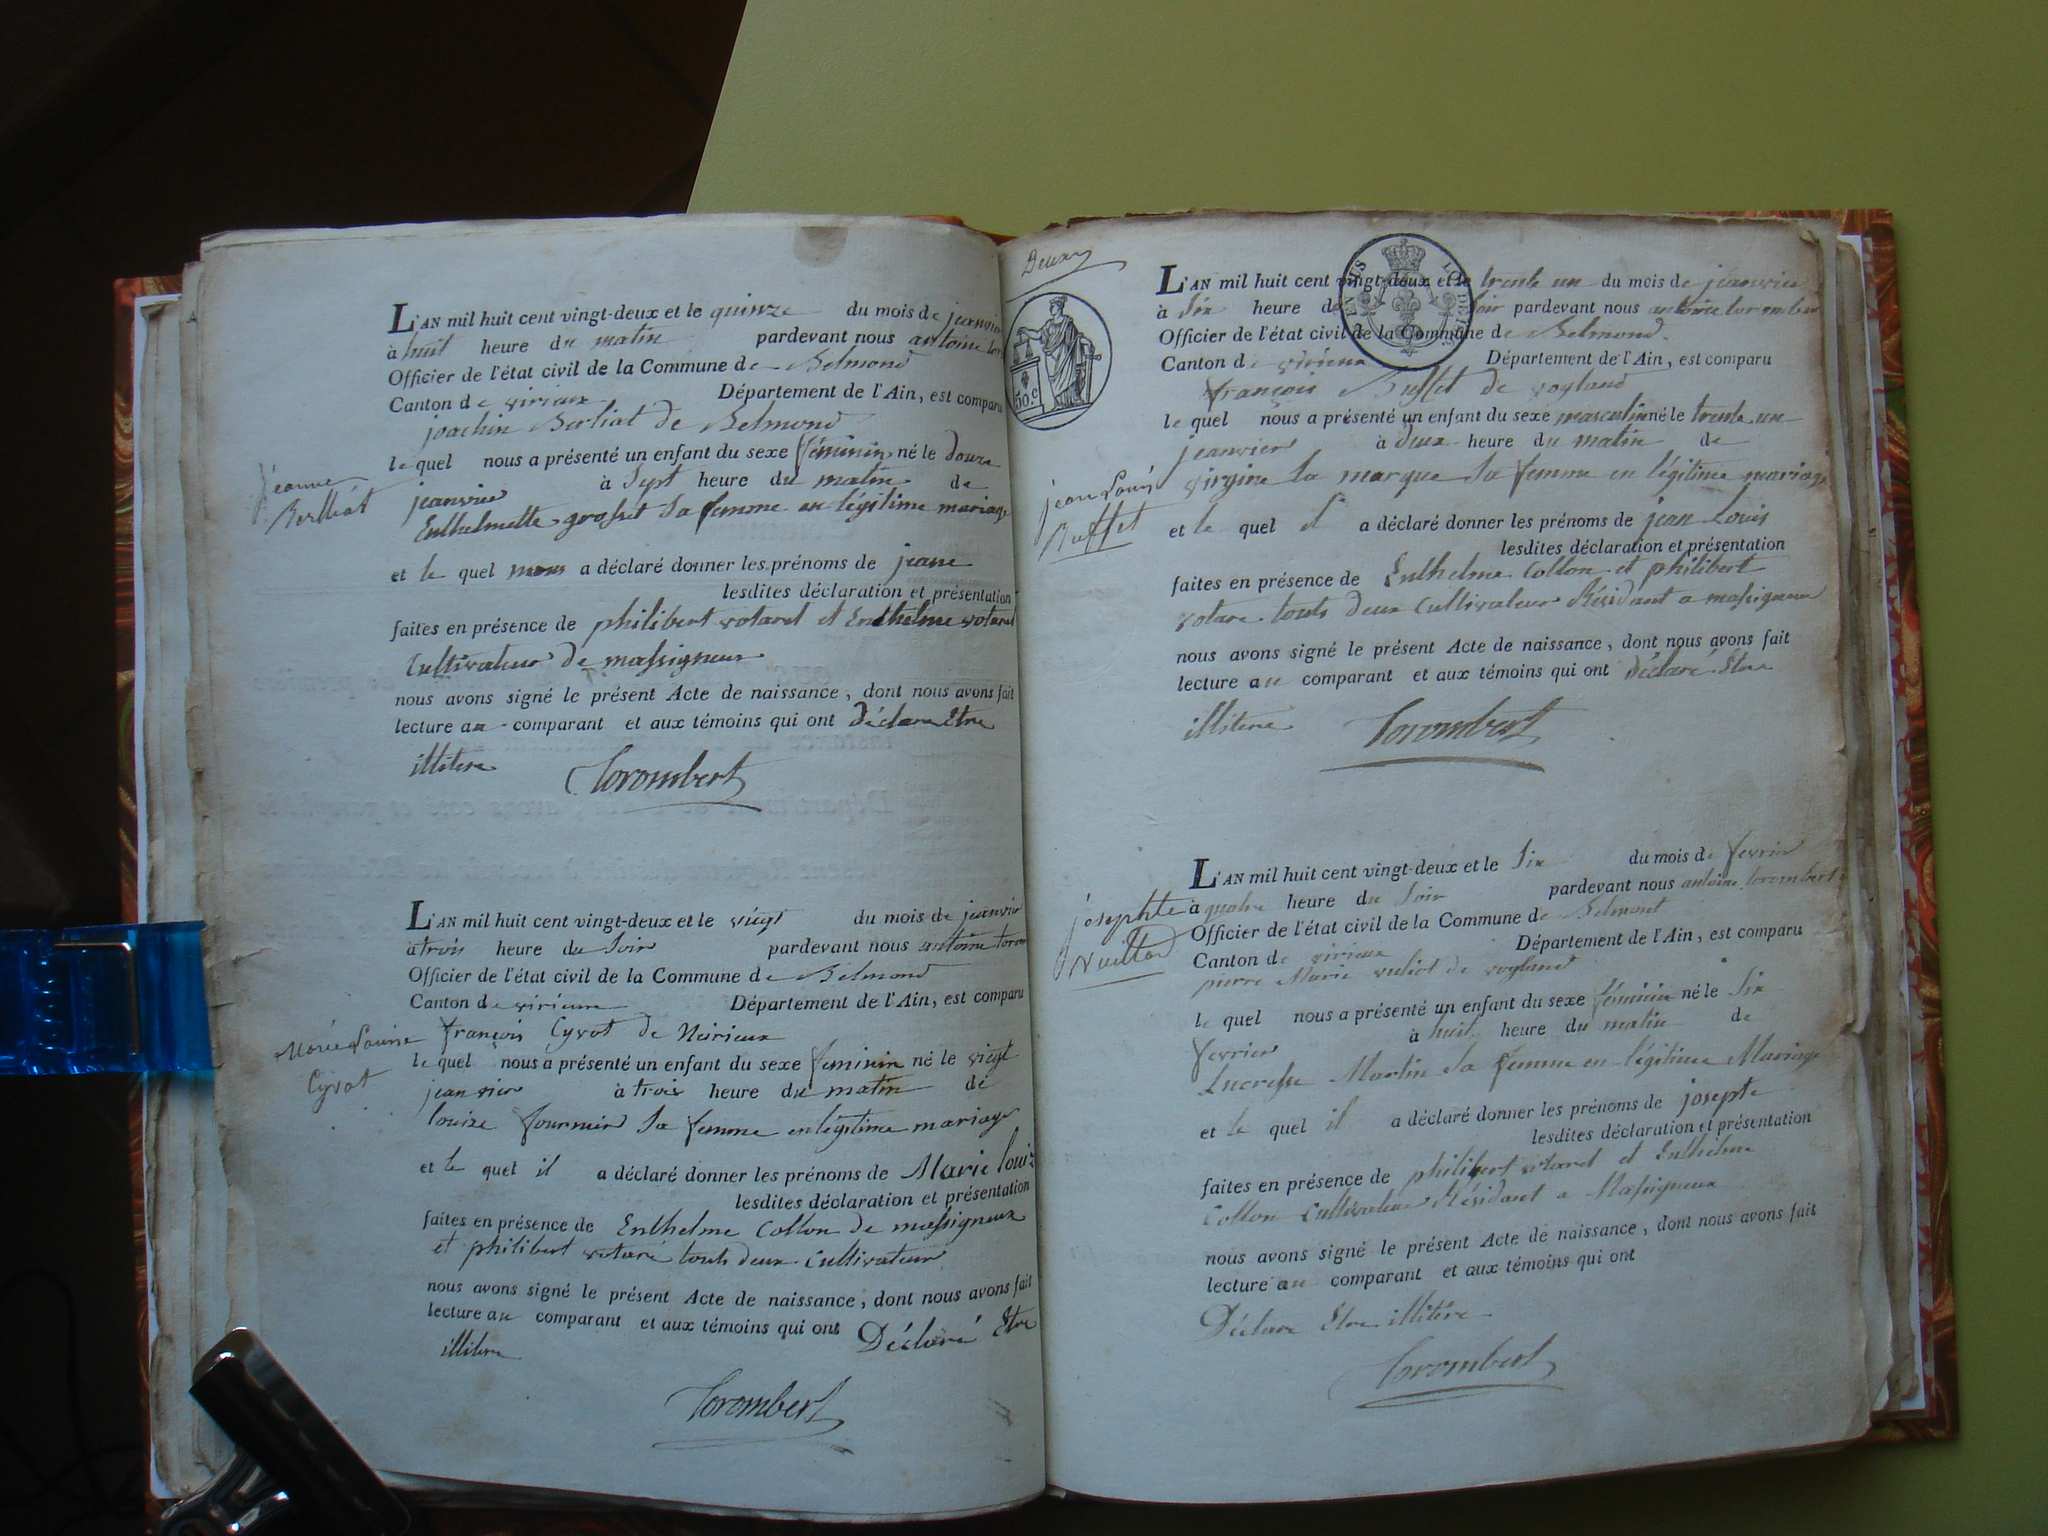 L'AN mil huit cent vingt-deux et le quinze du mois de jeanvier
à huit heure du matin pardevant nous antoine
Officier de l'état civil de la Commune de Belmond
Canton de virieux Département de l'Ain, est comparu
joachin Berliat de Belmond
le quel nous a présenté un enfant du sexe féminin né le douze
jeanvier à sept heure du matin de
Enthelmette grosset sa femme en légitime mariage
et le quel a déclaré donner les prénoms de jeane
lesdites déclaration et présentation
faites en présence de philibert votaret et Enthelme votaret
Cultivateur de massigneux
nous avons signé le présent Acte de naissance, dont nous avons fait
lecture au comparant et aux témoins qui ont Déclare Etre
illitere
Torombert
jeanne
Berlliat
L'AN mil huit cent vingt-deux et le vingt du mois de jeanvier
à trois heure du soir pardevant nous antoine
Officier de l'état civil de la Commune de Belmond
Canton de virieux Département de l'Ain, est comparu
françois Cyvot de
le quel nous a présenté un enfant du sexe feminin né le vingt
jeanvier à trois heure du matin de
louize fournier sa femme en légitime mariage
et le quel il a déclaré donner les prénoms de Marie
lesdites déclaration et présentation
faites en présence de Enthelme Collon de massigneux
et philibert votaré touts deux Cultivateur
nous avons signé le présent Acte de naissance, dont nous avons fait
lecture au comparant et aux témoins qui ont Déclaré Etre
illitere
Torombert
Marie Louise
Cyvot
Deux
50 c
L'AN mil huit cent vingt-deux et le trente un du mois de jeanvier
à six heure du soir pardevant nous antoine torombert
Officier de l'état civil de la Commune de Belmond
Canton de virieux Département de l'Ain, est comparu
françois Buffet de vogland
le quel nous a présenté un enfant du sexe masculin né le trente un
jeanvier à deux heure du matin de
virgine la marque sa femme en légitime mariage
et le quel il a déclaré donner les prénoms de jean Louis
lesdites déclaration et présentation
faites en présence de Enthelme Collon et philibert
votare touts deux Cultivateur Résidant a massigneux
nous avons signé le présent Acte de naissance, dont nous avons fait
lecture au comparant et aux témoins qui ont Déclaré Etre
illitere
Torombert
jean Louis
Buffet
L'AN mil huit cent vingt-deux et le six du mois de fevrier
à quatre heure du soir pardevant nous antoine torombert
Officier de l'état civil de la Commune de Belmont
Canton de virieux Département de l'Ain, est comparu
pierre Marie de vogland
le quel nous a présenté un enfant du sexe féminin né le six
fevrier à huit heure du matin de
Lucresse Martin sa femme en légitime Mariage
et le quel il a déclaré donner les prénoms de josepte
lesdites déclaration et présentation
faites en présence de philibert votaret et Enthelme
Collon Cultivateur Résidant a Massigneux
nous avons signé le présent Acte de naissance, dont nous avons fait
lecture au comparant et aux témoins qui ont
Déclare Etre illitére
Torombert
josephte